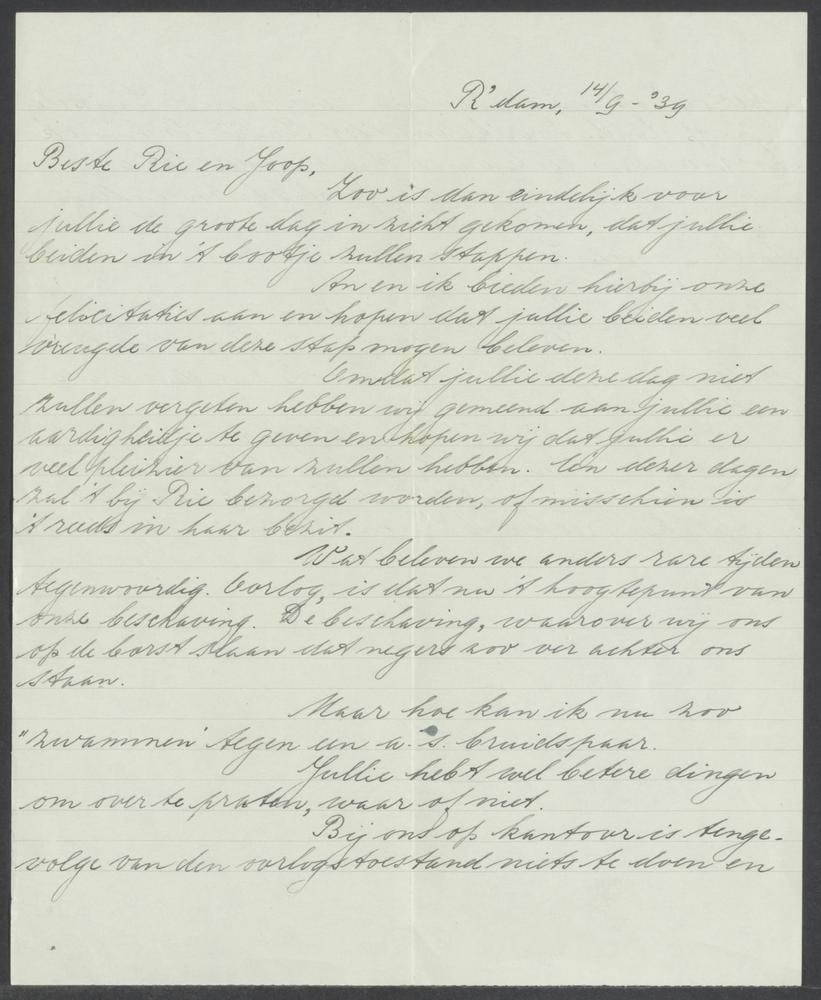 R'dam, 14/9-'39
Beste Rie en Joop,
Zoo is dan eindelijk voor
jullie de groote dag in zicht gekomen, dat jullie
beiden in 't bootje zullen stappen.
An en ik bieden hierbij onze
felicitaties aan en hopen dat jullie beiden veel
vreugde van deze stap mogen beleven.
Omdat jullie deze dag niet
zullen vergeten hebben wij gemeend aan jullie een
aardigheidje te geven en hopen wij dat jullie er
veel pleizier van zullen hebben. Een dezer dagen
zal 't bij Rie bezorgd worden, of misschien is
't reeds in haar bezit.
Wat beleven we anders rare tijden
tegenwoordig. Oorlog, is dat nu 't hoogtepunt van
onze beschaving. De beschaving, waarover wij ons
op de borst slaan dat negers zoo ver achter ons
staan.
Maar hoe kan ik nu zoo
"zwammen" tegen een a.s. bruidspaar.
Jullie hebt wel betere dingen
om over te praten, waar of niet.
Bij ons op kantoor is tenge-
volge van den oorlogstoestand niets te doen en